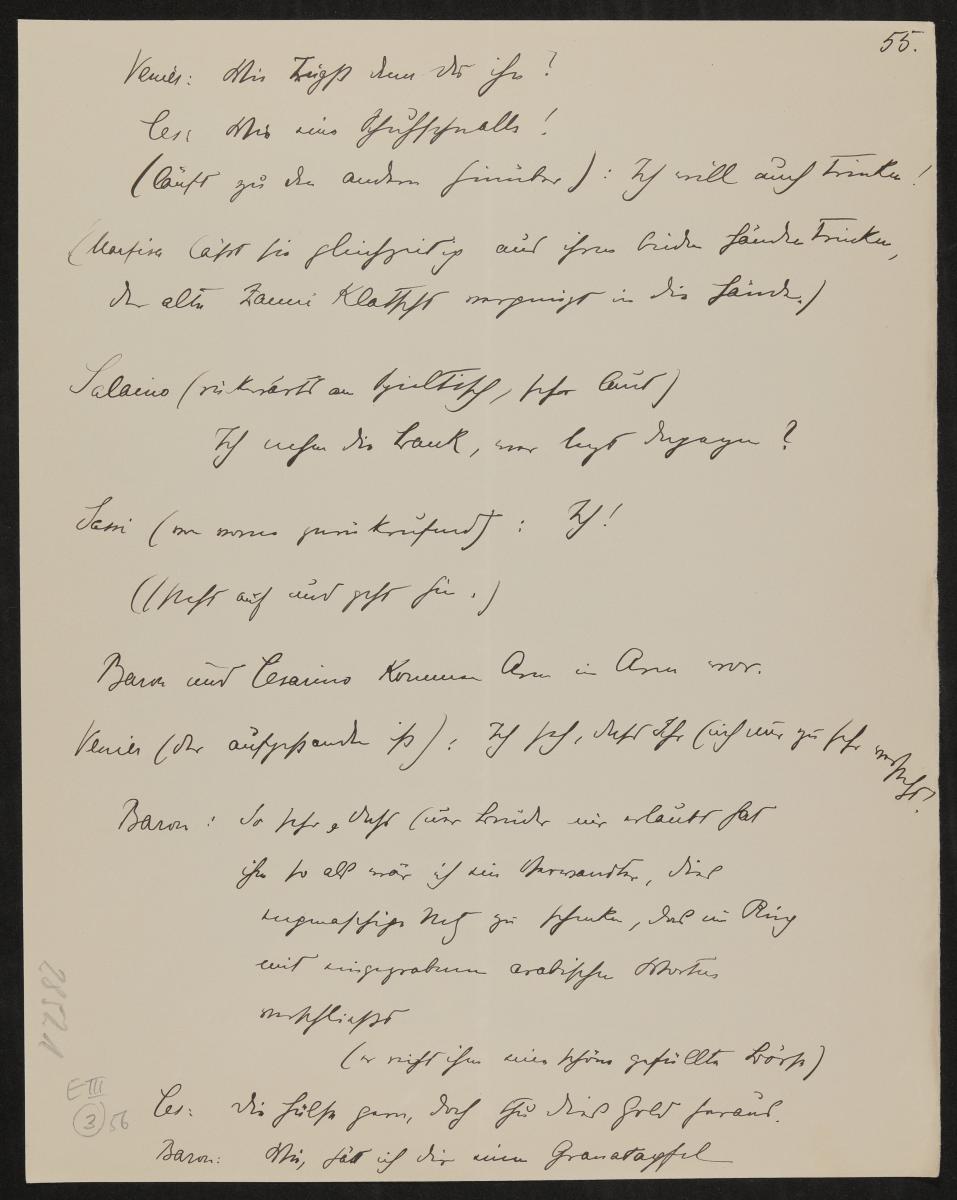 55.
Venier: Wie trägst denn du ihn?
Ces: Wie eine Schuhschnalle!
(läuft zu den andern hinüber): Ich will auch trinken!
(Marfisa lässt sie gleichzeitig aus ihren beiden Händen trinken,
der alte Zanni klatscht vergnügt in die Hände.)
Salaino (rückwärts am Spieltisch, sehr laut)
Ich nehm die Bank, wer legt dagegen?
Sassi (von vorne zurückrufend): Ich!
(steht auf und geht hin.)
Baron und Cesarino kommen Arm in Arm vor.
Venier (der aufgestanden ist): Ich seh, dass Ihr euch nur zu sehr versteht!
Baron: So sehr, dass euer Bruder mir erlaubt hat
ihm so als wär ich ein Verwandter, dies
engmaschige Netz zu schenken, das ein Ring
mit eingegrabnen arabischen Worten
verschliesst
(er reicht ihm eine schöne gefüllte Börse)
Ces: Die Hülse gern, doch thu dies Gold heraus.
Baron: Wie, hätt ich dir einen Granatapfel
28521
E III
3 56